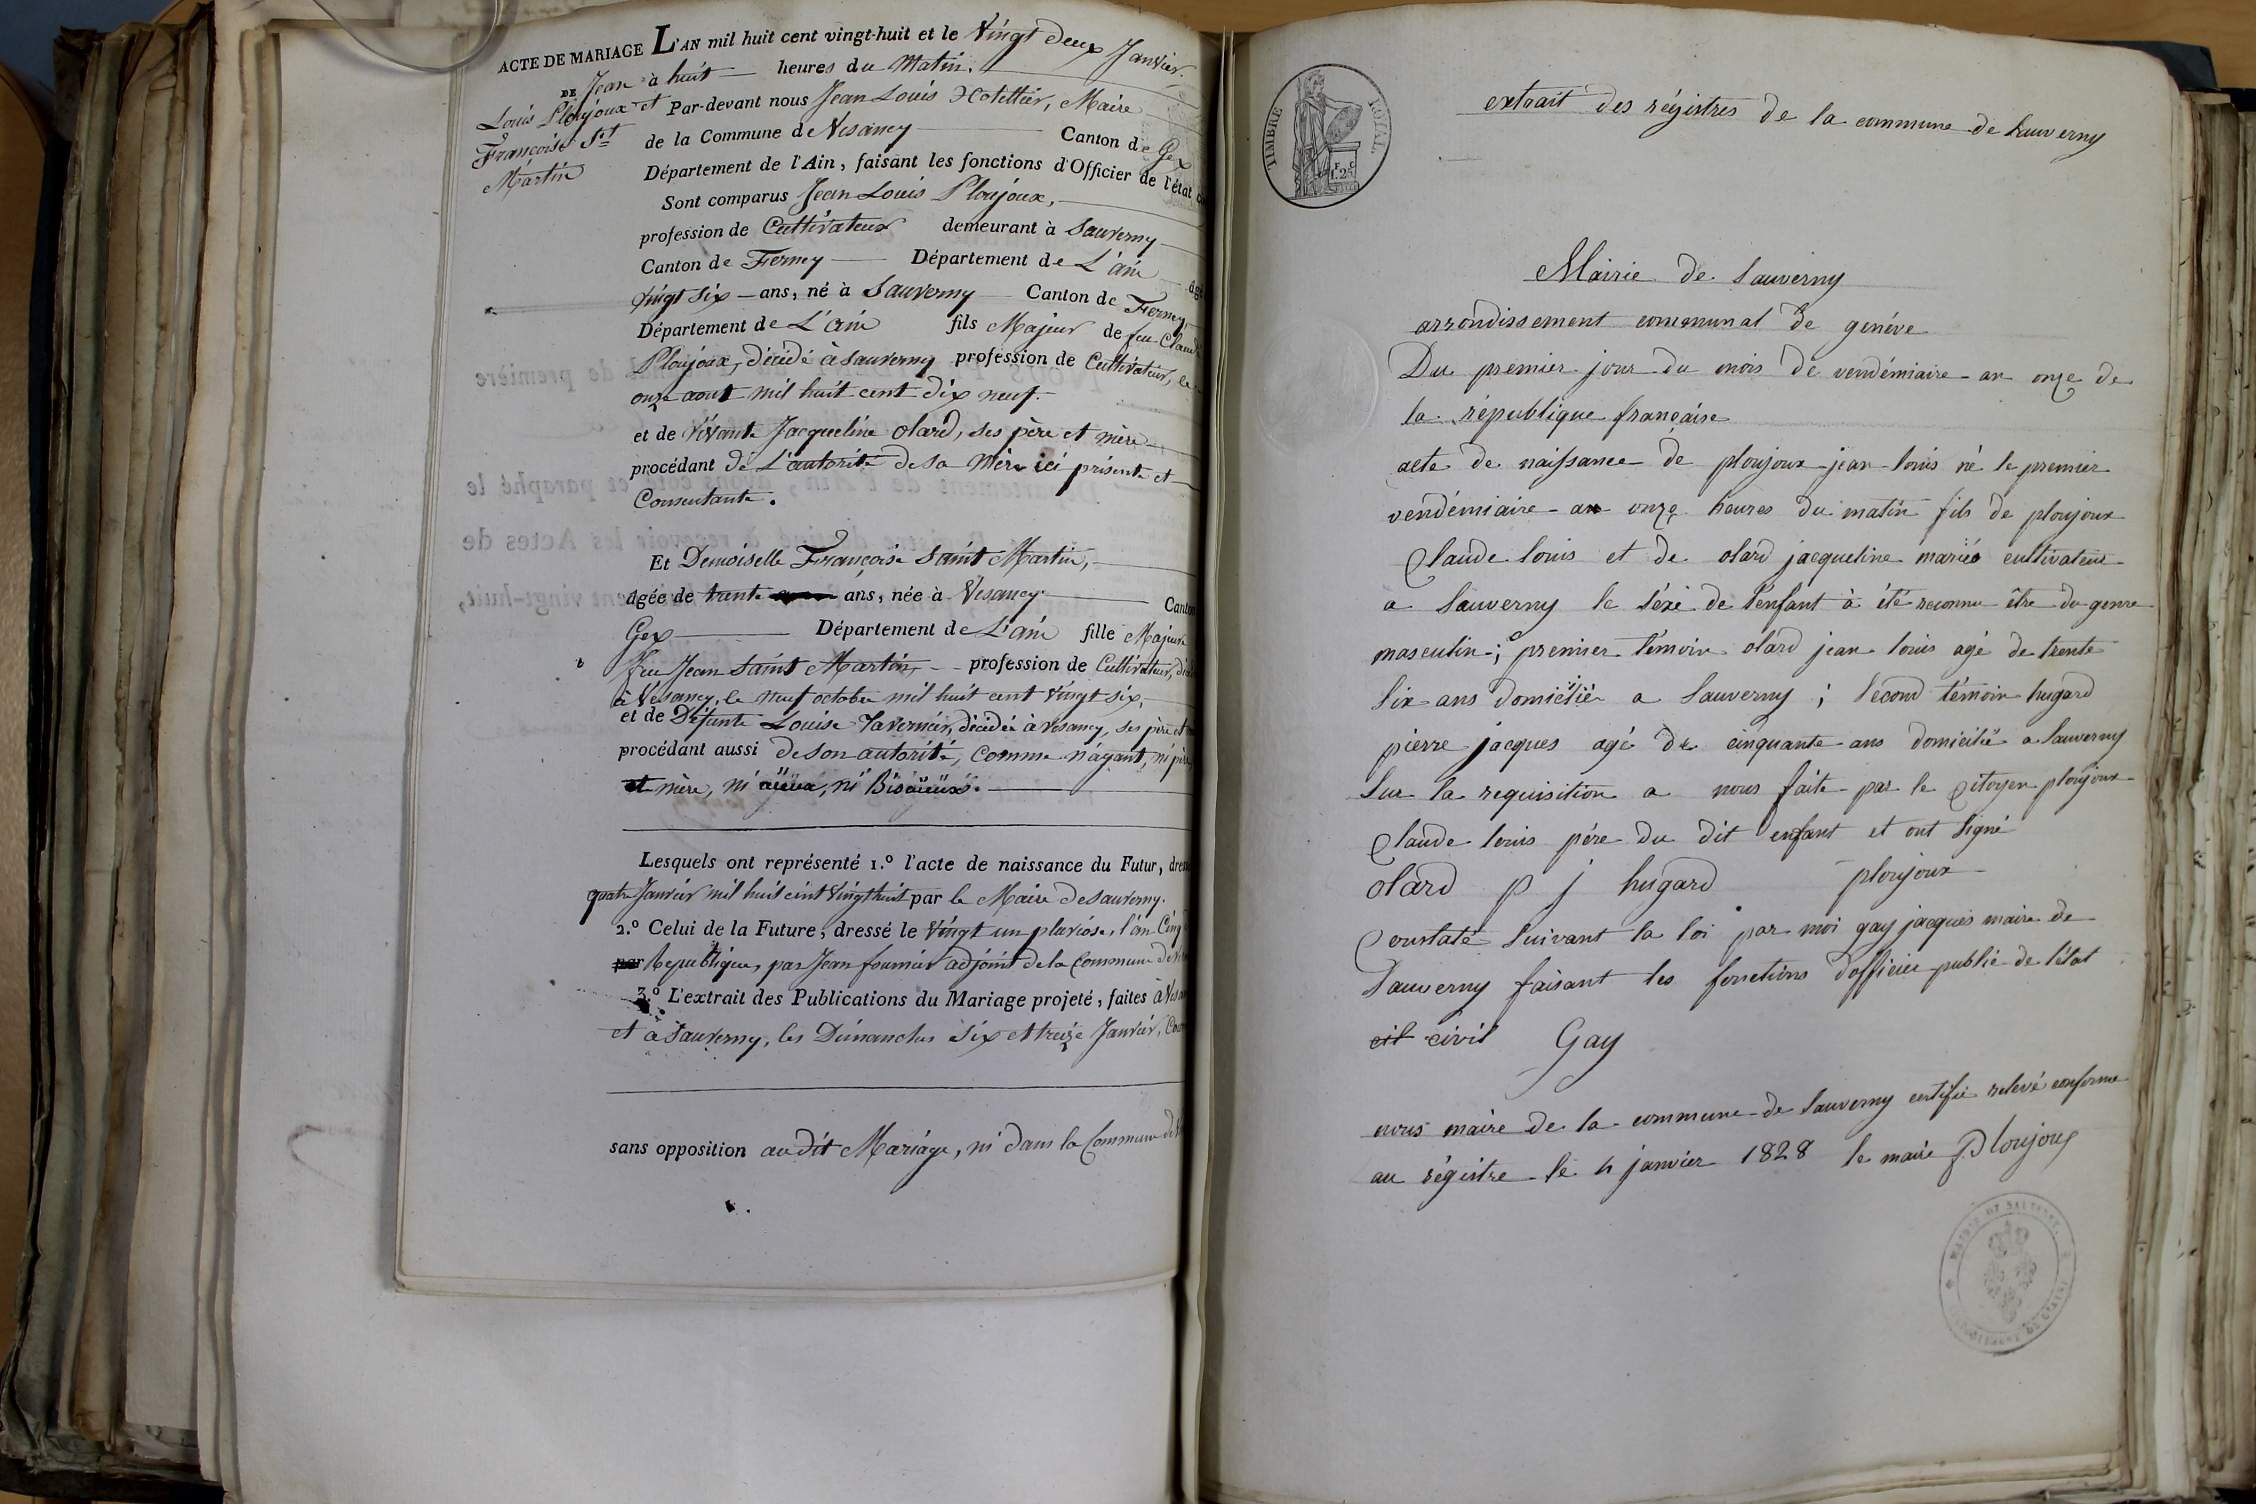 ACTE DE MARIAGE
DE Jean
Louis Ploujoux et
Françoise St
Martin
L'AN mil huit cent vingt-huit et le Vingt deux Janvier.
à huit heures du Matin.
Par-devant nous Jean Louis Hotellier, Maire
de la Commune de Vesancy Canton de Gex
Département de l'Ain, faisant les fonctions d'Officier de l'état
Sont comparus Jean Louis Ploujoux,
profession de Cultivateur demeurant à Sauverny
Canton de Ferney Département de L'ain
Vingt Six ans, né à Sauverny Canton de Ferney,
Département de L'ain fils Majeur de feu Claude
Ploujoux, décédé à Sauverny profession de Cultivateur, le
onze aout mil huit cent dix neuf.
et de Vivante Jacqueline olard, ses père et mère
procédant de L'autorité de sa Mère ici présente et
Consentante.
Et Demoiselle Françoise Saint Martin,
agée de trente ans, née à Vesancy Canton
Gex Département de L'ain fille Majeure
feu Jean Saint Martin, profession de Cultivateur,
à Vesancy, le neuf octobre mil huit cent Vingt six,
et de Défunte Louise Tavernier, décédée à Vesancy, ses père et
procédant aussi de son autorité, comme n'ayant, ni père
et mère, ni aïeux, ni Bisaïeux.
Lesquels ont représenté 1.º l'acte de naissance du Futur,
quatre Janvier mil huit cent Vingt huit par le Maire de Sauverny.
2.º Celui de la Future, dressé le Vingt un pluviose, l'an Cinq
par Republique, par Jean fournier adjoint de la Commune de
3.º L'extrait des Publications du Mariage projeté, faites à
et à Sauverny, les Dimanches Six et treize Janvier,
sans opposition au dit Mariage, ni dans la Commune de
TIMBRE ROYAL.
extrait des régistres de la commune de Sauverny
Mairie de Sauverny
arrondissement communal de genéve
Du premier jour du mois de vendémiaire an onze de
la république française
acte de naissance de ploujoux jean louis né le premier
vendémiaire an onze heures du matin fils de ploujoux
Claude louis et de olard jacqueline mariés cultivateur
a Sauverny le séxe de l'enfant à été reconnu être du genre
masculin; premier témoin olard jean louis agé de trente
Six ans domicilié a Sauverny; Second témoin hugard
pierre jacques agé de cinquante ans domicilié a Sauverny
Sur la requisition a nous faite par le Citoyen ploujoux
Claude louis père du dit enfant et ont Signé
olard p j hugard ploujoux
Constaté Suivant la loi par moi gay jacques maire de
Sauverny faisant les fonctions d'officier public de l'état
cil civil Gay
nous maire de la commune de Sauverny certifie relevé conforme
au régistre le 4 janvier 1828 le maire Ploujoux